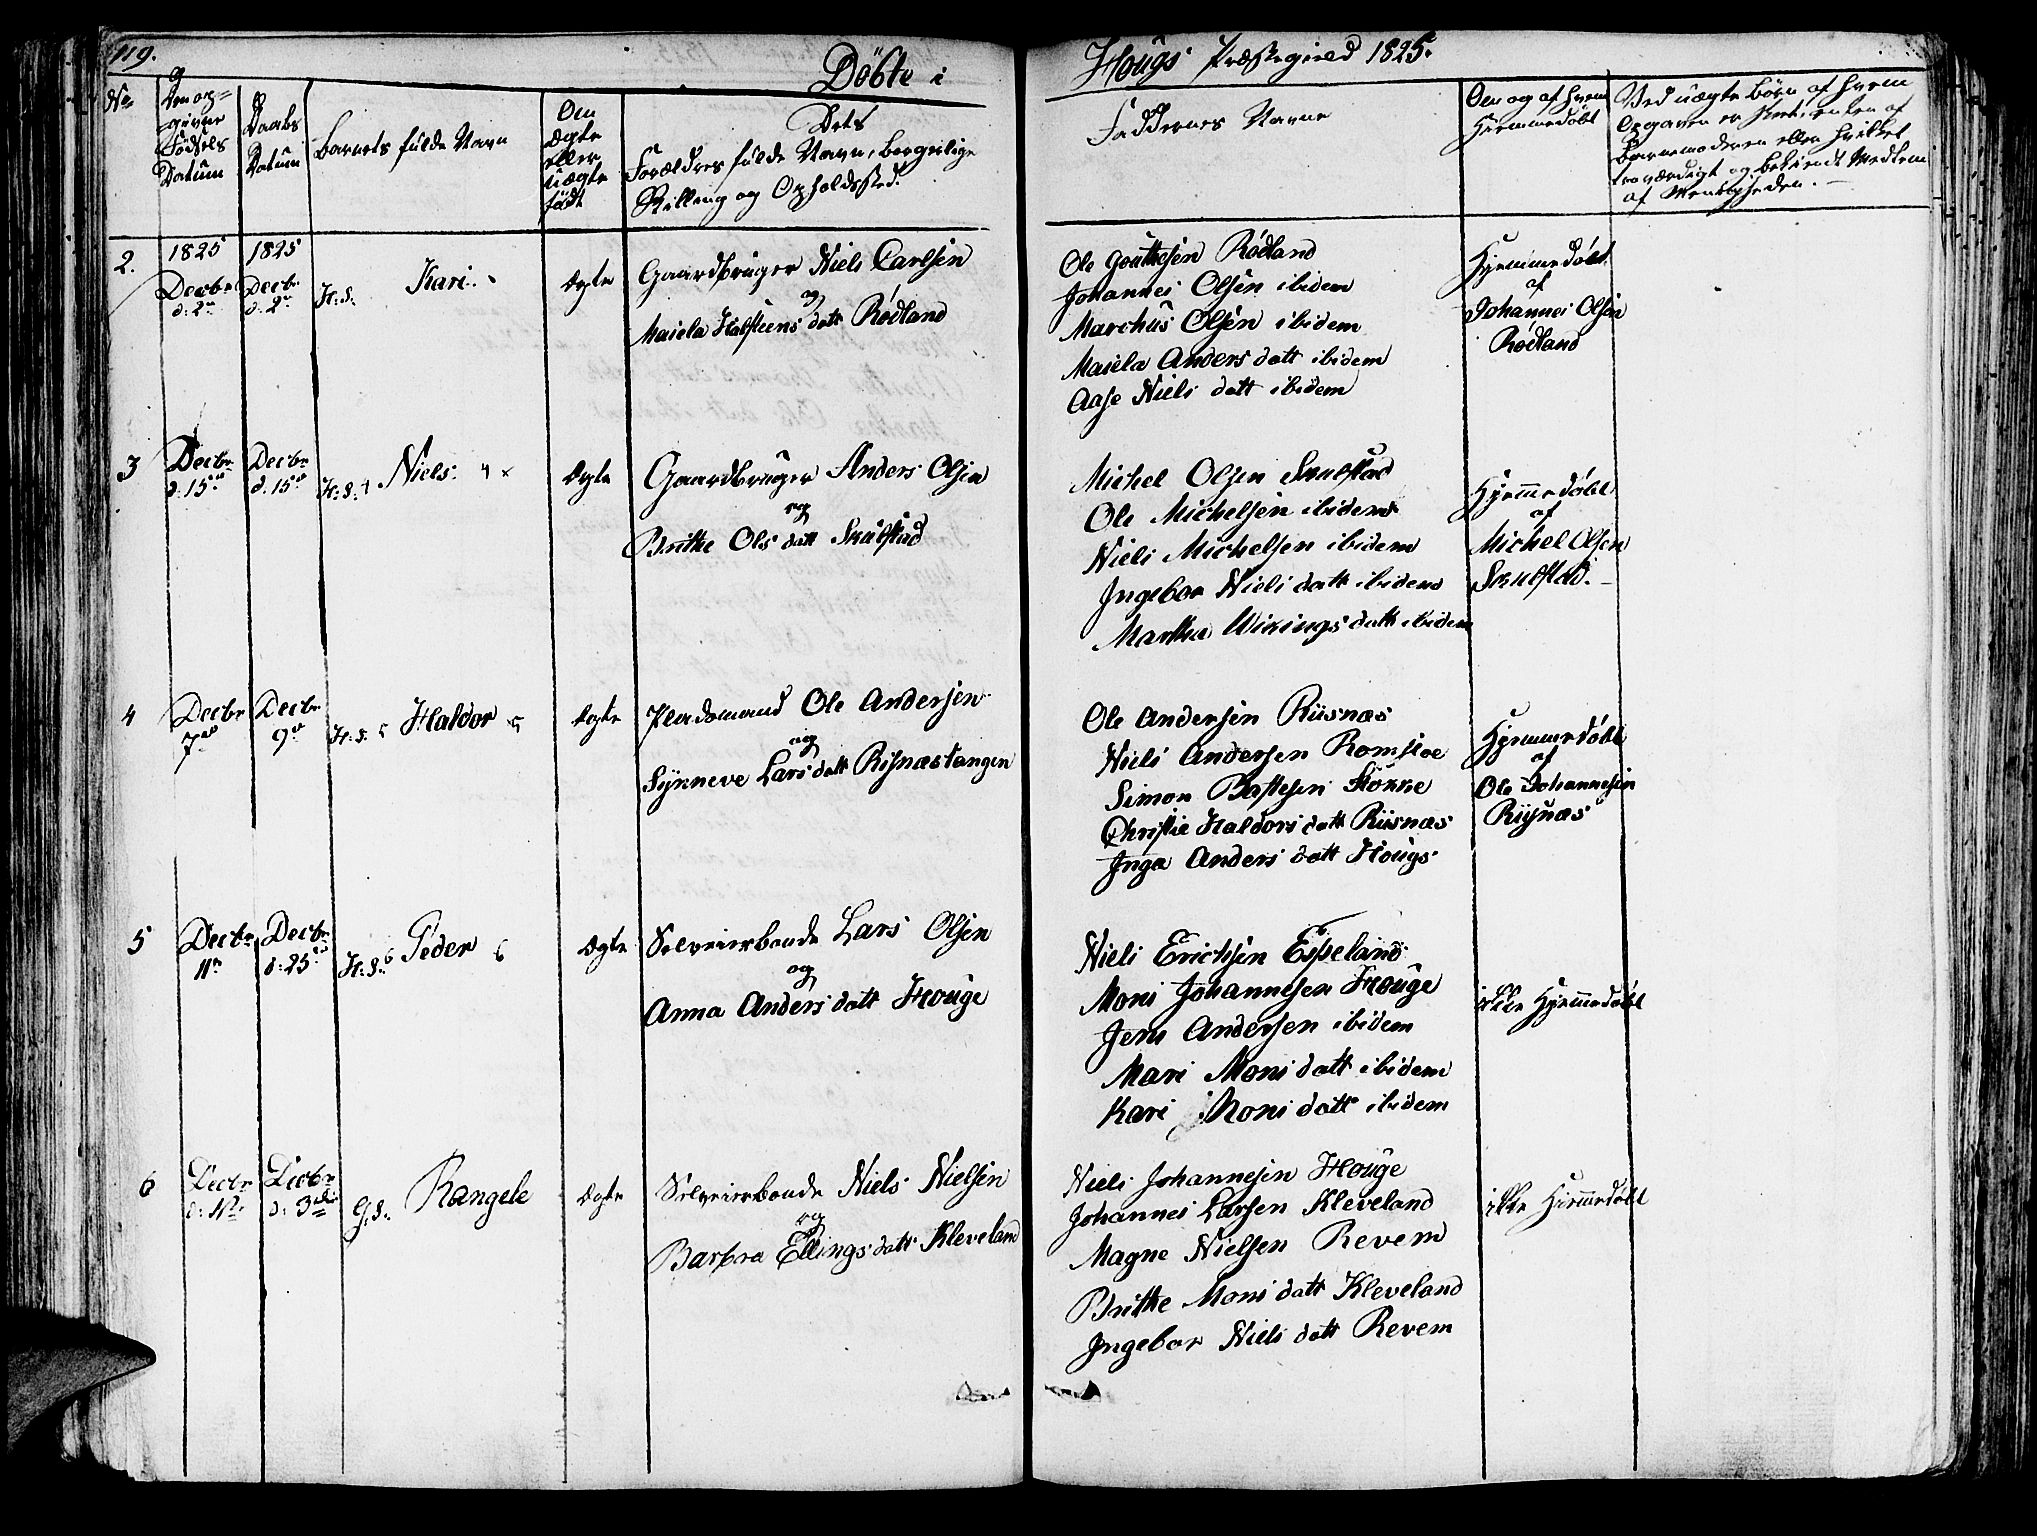 119.
Döbte i
Hougs Præstegield 1825.
No
Den op=
givne
Födsels
Datum
Daabs
Datum
Barnets fulde Navn
Om
ægte
eller
uægte
födt
Dets
Forældres fulde Navn, borgerlige
Stilling og Opholdssted.
Faddernes Navne
Om og af hvem
hiemmedöbt
Ved uægte Börn af hvem
Opgaven er
Barnemoderen eller hvilket
troværdigt og bekiendt Medlem
af Menigheden.
2.
1825
Decbr
d: 2n
1825
Decbr
d. 2n
H: S.
Kari.
Ægte
Gaardbruger Niels Carlsen
og
Maiela Halsteens datt Rödland
Ole Goutthesen Rödland
Johannes Olsen ibidem
Marchus Olsen ibidem
Maiela Anders datt ibidem
Aase Niels datt ibidem
Hjemmedöbt
af
Johannes Olsen
Rödland
3
Decbr
d: 15de
Decbr
d. 15de
H: S: 4
Niels. 4 x
Ægte
Gaardbruger Anders Olsen
og
Brithe Ols datt Skulstad
Michel Olsen Skulstad
Ole Michelsen ibidem
Niels Michelsen ibidem
Ingebor Niels datt ibidem
Martha Wikings datt ibidem
Hjemmedöbt
af
Michel Olsen
Skulstad.
4
Decbr
7de
Decbr
9de
H: S. 5
Haldor 5
Ægte
Pladsmand Ole Andersen
og
Synneve Lars datt Risnæstangen
Ole Andersen Riisnæs
Niels Andersen Romsloe
Simon Baftesen Stokke
Christie Haldors datt Riisnæs
Inga Anders datt Hougs
Hjemmedöbt
af
Ole Johannesen
Riisnæs
5
Decbr
11te
Decbr
d: 25de
H: S. 6
Peder 6
Ægte
Selveierbonde Lars Olsen
og
Anna Anders datt Houge
Niels Erichsen Espeland
Mons Johannesen Houge
Jens Andersen ibidem
Mari Mons datt ibidem
Kari Mons datt ibidem
ikke Hjemmedöbt
6
Decbr
Decbr
G: S.
Rangele
Ægte
Selveierbonde Niels Nielsen
og
Barbra Ellings datt Kleveland
Niels Johannesen Houge
Johannes Larsen Kleveland
Magne Nielsen Revem
Brithe Mons datt Kleveland
Ingebor Niels datt Revem
ikke Hiemmedöbt